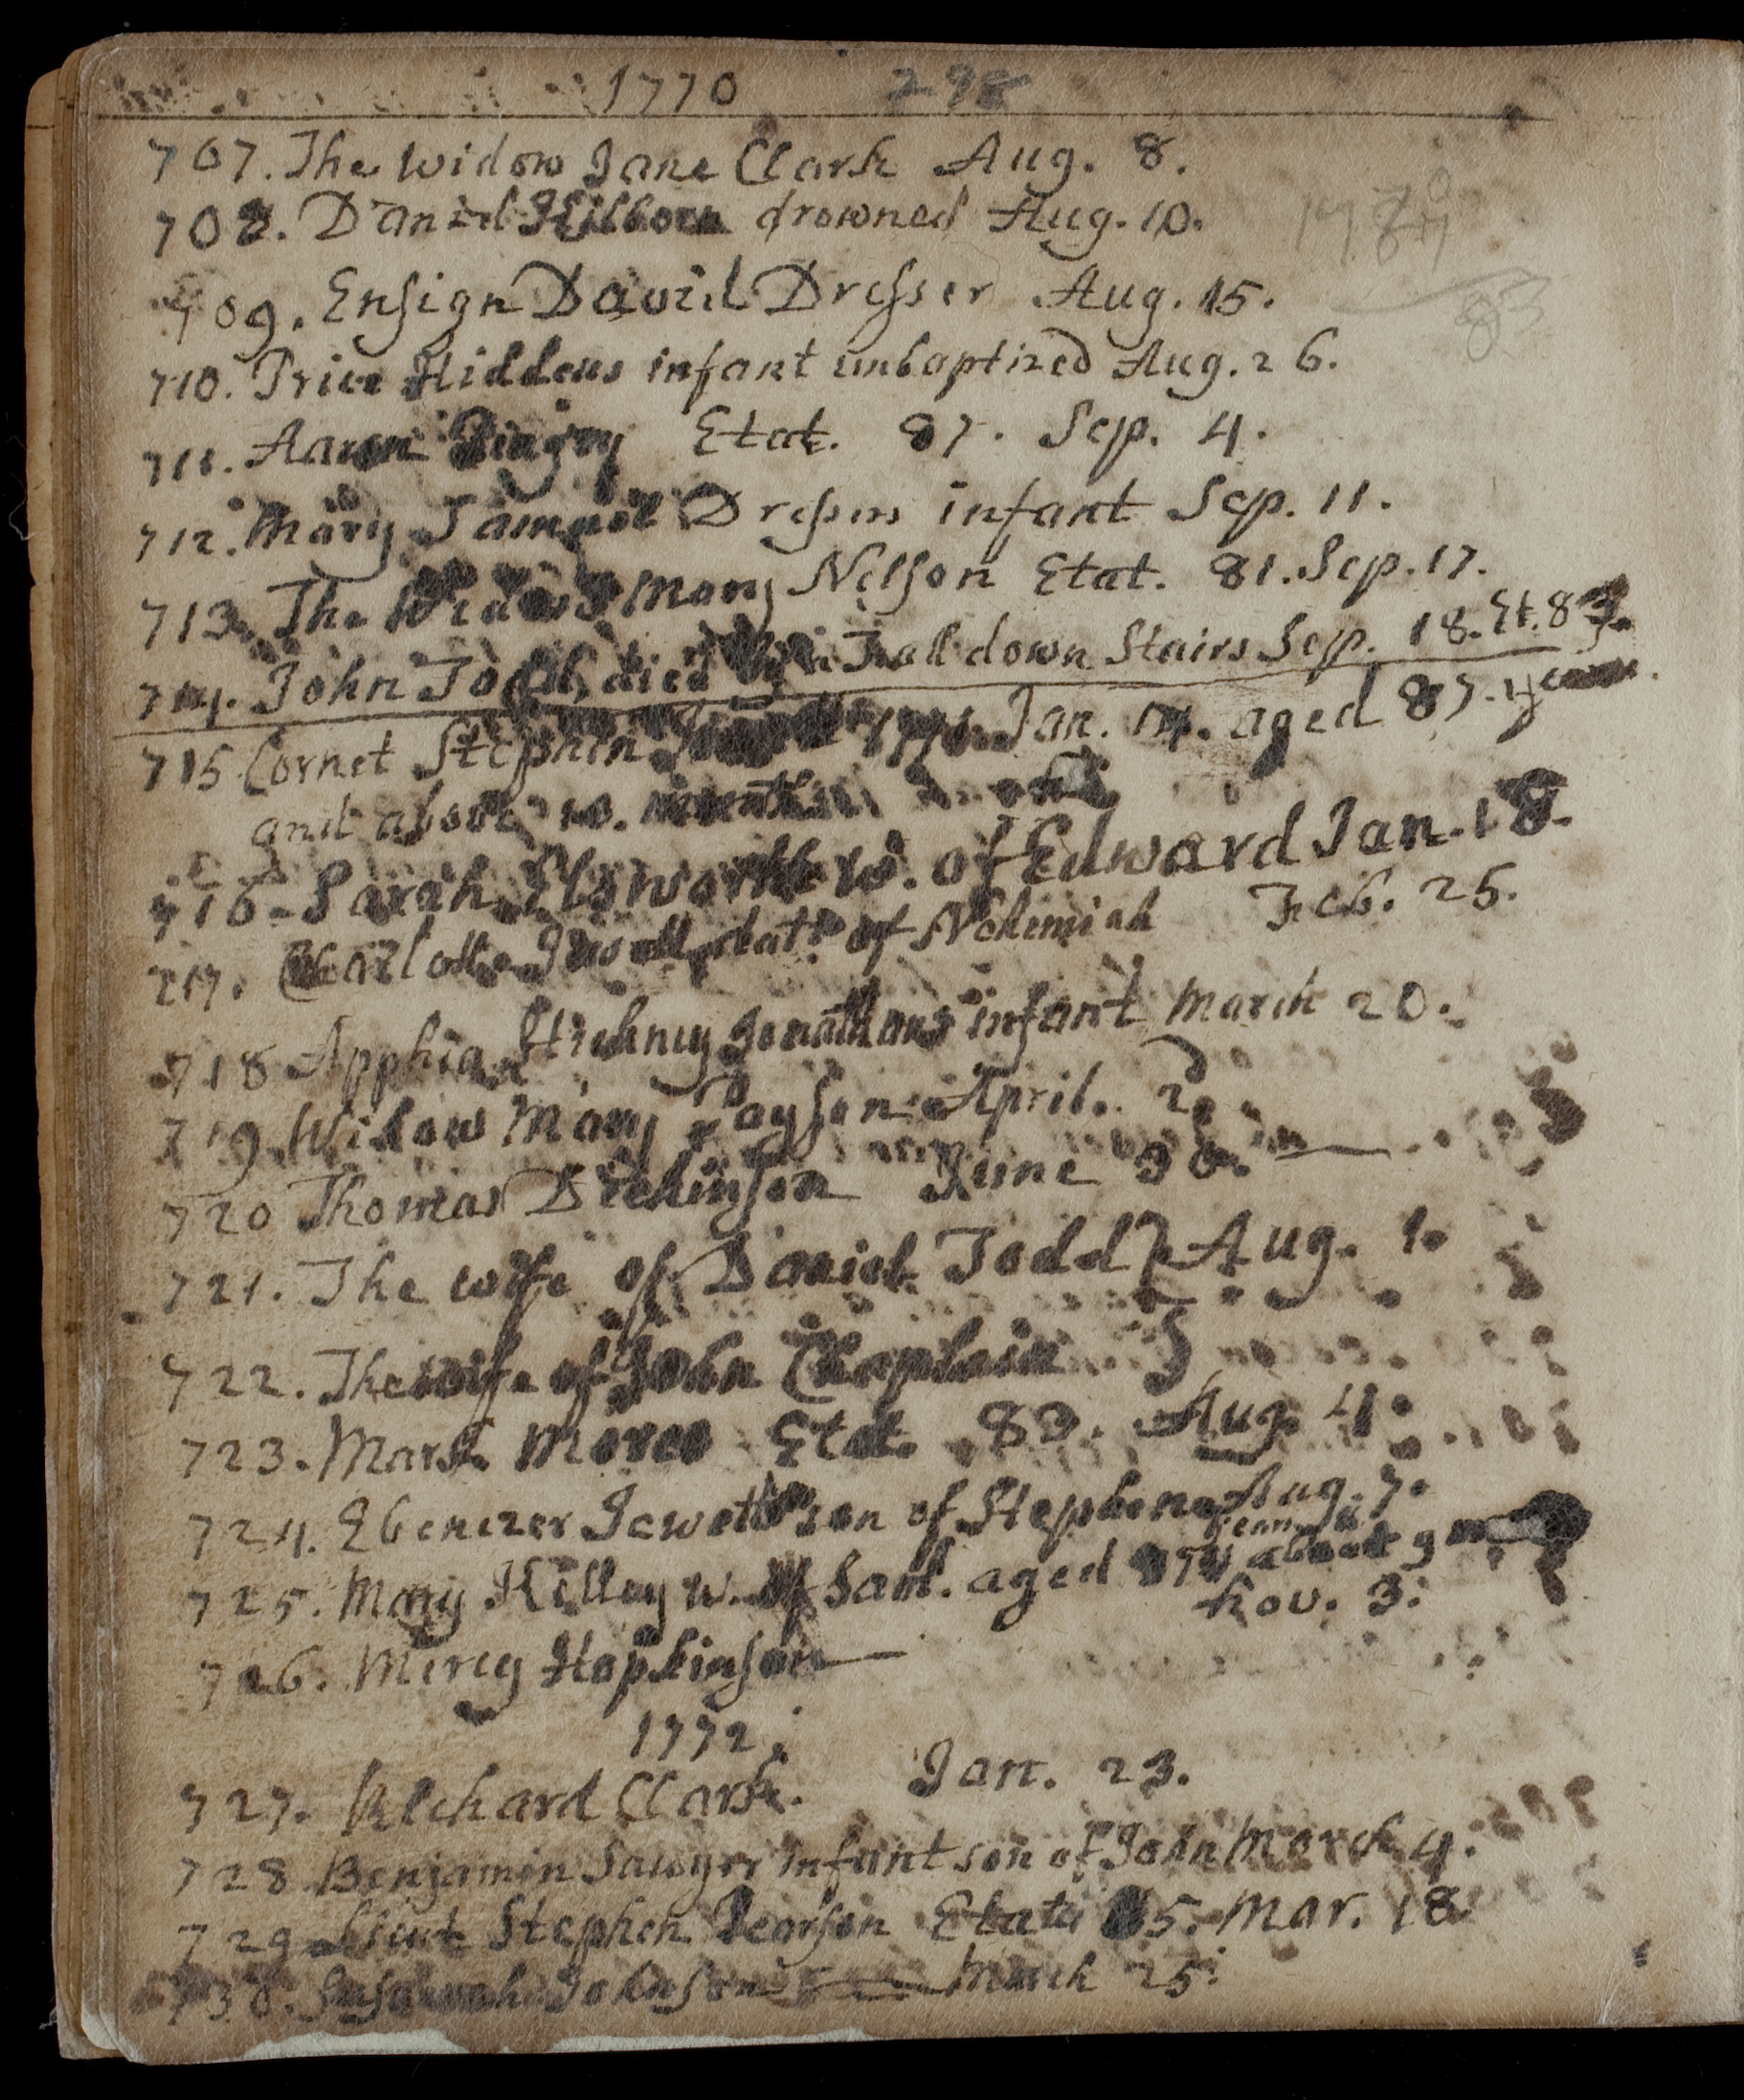 1770 298
707. The Widow Jane Clark Aug. 8.
708. Daniel Hilborn drowned Aug. 10.
1770
87
83
709. Ensign David Dresser Aug. 15.
710. Price Hiddens infant unbaptized Aug. 26.
711. Aaron Pingry Etat. 87. Sep. 4.
712. Mary Samuel Dressers infant Sep. 11.
713. The Widow Mary Nelson Etat. 81. Sep. 17.
714. John Todd, died by a Fall down Stairs Sep. 18. Et. 83.
715 Cornet Stephen 1771. Jan. 14. aged 87. years
and about 10. months
716. Sarah Elsworth w. of Edward Jan. 18.
717. Charlotte Jewett datr. of Nehemiah Feb. 25.
718 Apphia Stickney Jonathans infant March 20.
719. Widow Mary Payson April. 2.
720 Thomas Dickinson June 30.
721. The wife of Daniel Todd } Aug. 1.
722. The wife of John Chaplain }
723. Mark Mores Etat. 83. Aug. 4.
724. Ebenezer Jewett son of Stephen Aug. 7.
725. Mary Killey w. of Saml. aged 87 years about 9 m
Nov. 3.
726. Mercy Hopkinson —
1772.
727. Richard Clark. Jan. 23.
728 Benjamin Sawyer infant son of John March 4.
729 Lieut Stephen Pearson Etatis 85. Mar. 18
730. Susannah Johnson March 25.